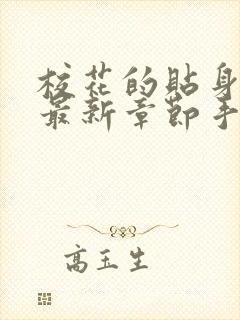 校花的貼身
最新章節手
高玉生